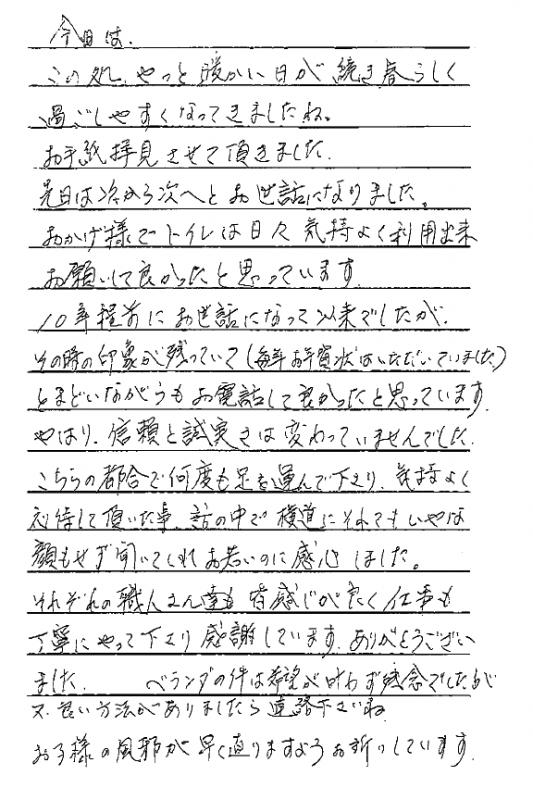 今日は、
この処、やっと暖かい日が続き春らしく
過ごしやすくなってきましたね。
お手紙拝見させて頂きました。
先日は次から次へとお世話になりました。
おかげ様でトイレは日々気持よく利用出来
お願いして良かったと思っています。
10年程前にお世話になって以来でしたが、
その時の印象が残っていて(毎年お年賀状はいただいていました)
とまどいながらもお電話して良かったと思っています。
やはり、信頼と誠実さは変わっていませんでした。
こちらの都合で何度も足を運んで下さり、気持よく
応待して頂いた事、話の中で横道にそれてもいやな
顔もせず聞いてくれお若いのに感心しました。
それぞれの職人さん達も皆感じが良く仕事も
丁寧にやって下さり感謝しています。ありがとうござい
ました。 ベランダの件は希望が叶わず残念でしたが
又、良い方法がありましたら連絡下さいね
お子様の風邪が早く直りますようお祈りしています。